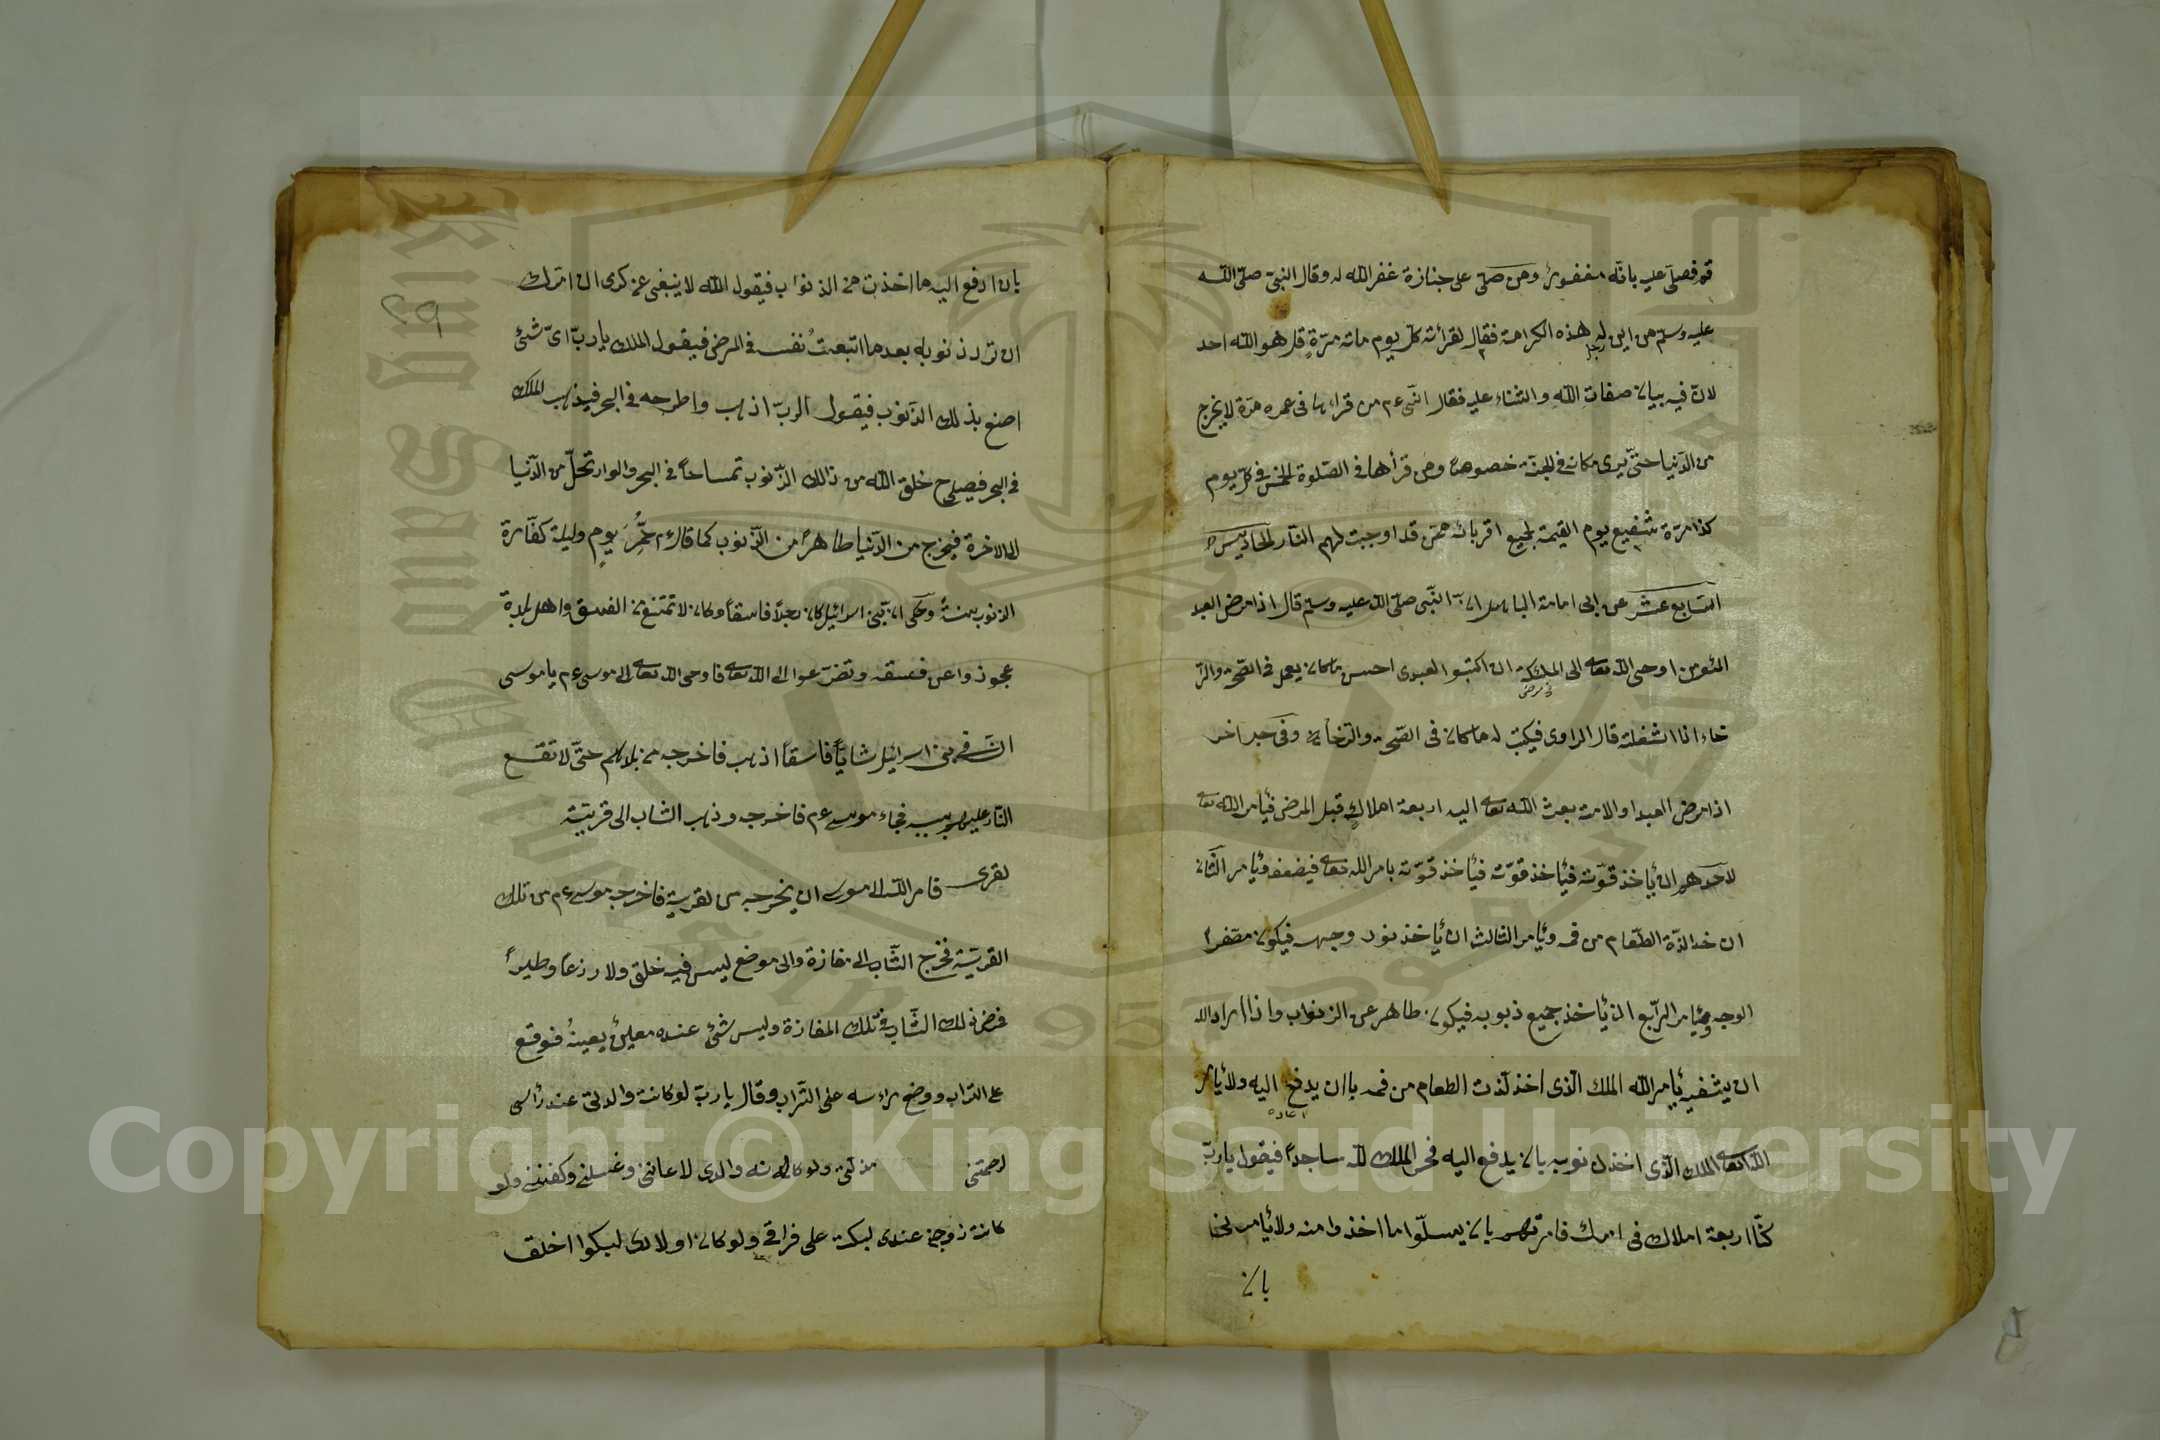 قم فصل عليه بانّه مغفور ومن صلّى على جنازة غفر اللّه له وقال النبىّ صلّى اللّه
عليه وسلّم من اين له هذه الكرامة فقال لقرائته كلّ يوم مائة مرّة قل هو اللّه احد
رجل
لانّ فيه بيان صفات اللّه والثناء عليه فقال النّبى ع م من قراءها فى عمره مرّة لا يخرج
من الدّنيا حتّى يرى مكانه فى الجنّة خصوصًا ومن قرأها فى الصّلوة الخمس فى كلّ يوم
كذا مرّة شفيع يوم القيمة لجميع اقربائه ممّن قد اوجبت لهم النّار الحاديث
السّابع عشر عن ابى امامة الباهلى ان النّبى صلّى اللّه عليه وسلّم قال اذا مرض العبد
المئومن اوحى اللّه تعالى الى الملئكة ان اكتبوا لعبدى احسن ما كان يعمل فى الصّحة والرّ
فى مرضى
خاء انا اشغلته قال الراوى فيكتب له ما كان فى الصّحة والرّخاء وفى خبر اخر
اذا مرض العبد او الامة بعث اللّه تعالى اليه اربعة املاك قبل المرض فيأمر اللّه تعالى
لاحدهم ان يأخذ قوّته فيأخذ قوّته فيأخذ قوّته بامر اللّه تعالى فيضعف ويأمر الثّانى
ان خذ لذّة الطّعام من فمه ويأمر الثالث ان يأخذ نور وجهه فيكون مصفرا
الوجه ويأمر الرّابع ان يأخذ جميع ذنوبه فيكون طاهر عن الذنواب واذا اراد اللّه
ان يشفيه يأمر اللّه الملك الّذى اخذ لذت الطعام من فمه باان يدفع اليه ولا يأمر
اعاده
اللّه تعالى الملك الّذى اخذ ذنوبه بان يدفع اليه فخر الملك للّه ساجدًا فيقول يا ربّ
كنّا اربعة املاك فى امرك فامرتهم بان يسلّوا ما اخذوا منه ولا يأمر لنا
بان
بان ادفع اليه ما اخذت من الذنواب فيقول اللّه لا ينبغى عن كرمى ان امرك
ان تردّ ذنوبه بعد ما اتبعت نفسه فى المرض فيقول الملك يا ربّ اىّ شئ
اصنع بذلك الذّنوب فيقول الربّ اذهب واطرحه فى البحر فيذهب الملك
فى البحر فيصلح خلق اللّه من ذالك الذّنوب تمساحًا فى البحر والو ارتحل من الدّنيا
الى الاخرة فيخرج من الدّنيا طاهرًا من الذّنوب كما قال ع م حمّى يوم وليلة كفّارة
الذنوب سنة وحكى ان بنى اسرائيل كان رجلا فاسقاً وكان لا تمتنع من الفسق واهل بلدة
عجوذوا عن فسقه وتضرّعوا الى اللّه تعالى فاوحى اللّه تعالى الى موسى ع م يا موسى
انّ فى بنى اسرائيل شابّاً فاسقاً اذهب فاخرجه من بلادكم حتّى لا تقع
النّار عليهم بسببه فجاء موسى ع م فاخرجه وذهب الشاب الى قريتة
لقرى فامر اللّه لا موسى ان يخرجه من لقرية فاخرجه موسى ع م من تلك
القريّة فخرج الشّاب الى مغازة والى موضع ليس فيه خلق ولا رزعا وطيراً
فمرض ذلك الشّاب فى تلك المغازة وليس شئ عنده معين يعينه فوقع
على التراب ووضع راءسه على التّراب وقال يا ربّ لو كانت والدتى عند رأسى
لرحمتنى مذلّتى ولو كان والدى لاعاننى وغسلنى وكفننى ولو
كانت زوجتى عندى لبكت على فراقى ولو كان اولادى لبكوا اخلق